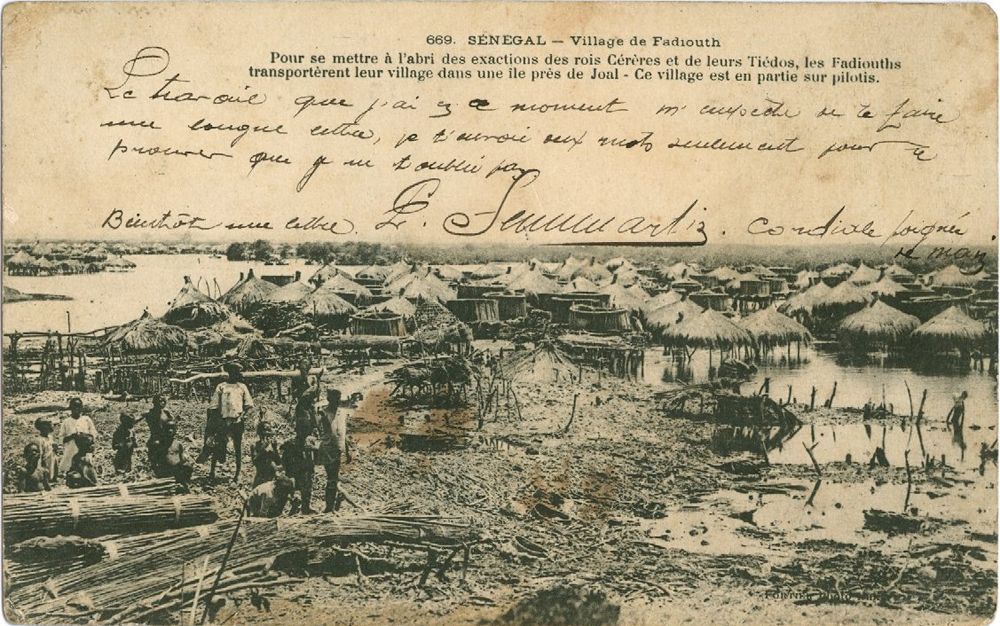 669. SÉNÉGAL — Village de Fadiouth
Pour se mettre à l'abri des exactions des rois Cérères et de leurs Tiédos, les Fadiouths
transportèrent leur village dans une île près de Joal - Ce village est en partie sur pilotis.
Le travail que j'ai en ce moment m'empêche de te faire
une longue lettre, je t'envoie deux mots seulement pour te
prouver que je ne t'oublie pas
Bientôt une lettre. Cordiale poignée
de main
Fortier, photo, Dakar